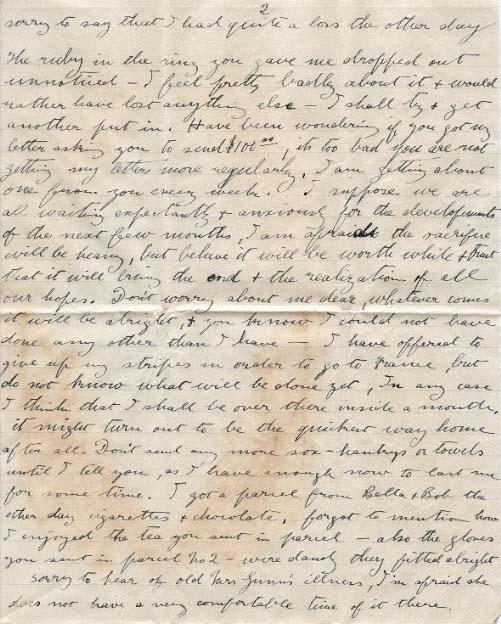 2
sorry to say that I had quite a loss the other day
The ruby in the ring you gave me dropped out
unnoticed – I feel pretty badly about it & would
rather have lost anything else – I shall try & get
another put in. Have been wondering if you got my
letter asking you to send $100.00, its too bad you are not
getting my letters more regularly, I am getting about
one from you every week. I suppose we are
all waiting expectantly & anxiously for the developments
of the next few months, I am afraid the sacrifice
will be heavy, but believe it will be worth while & trust
that it will bring the end & the realization of all
our hopes. Don't worry about me dear, whatever comes
it will be alright, & you know I could not have
done any other than I have – I have offered to
give up my stripes in order to go to France, but
do not know what will be done yet, In any case
I think that I shall be over there inside a month,
it might turn out to be the quickest way home
after all. Don't send any more sox – hankys or towels
until I tell you, as I have enough now to last me
for some time. I got a parcel from Bella & Bob the
other day cigarettes & chocolate, forgot to mention how
I enjoyed the tea you sent in parcel – also the gloves
you sent in parcel No 2 – were dandy they fitted alright
sorry to hear of old Mrs Gunn's illness, I'm afraid she
does not have a very comfortable time of it there.